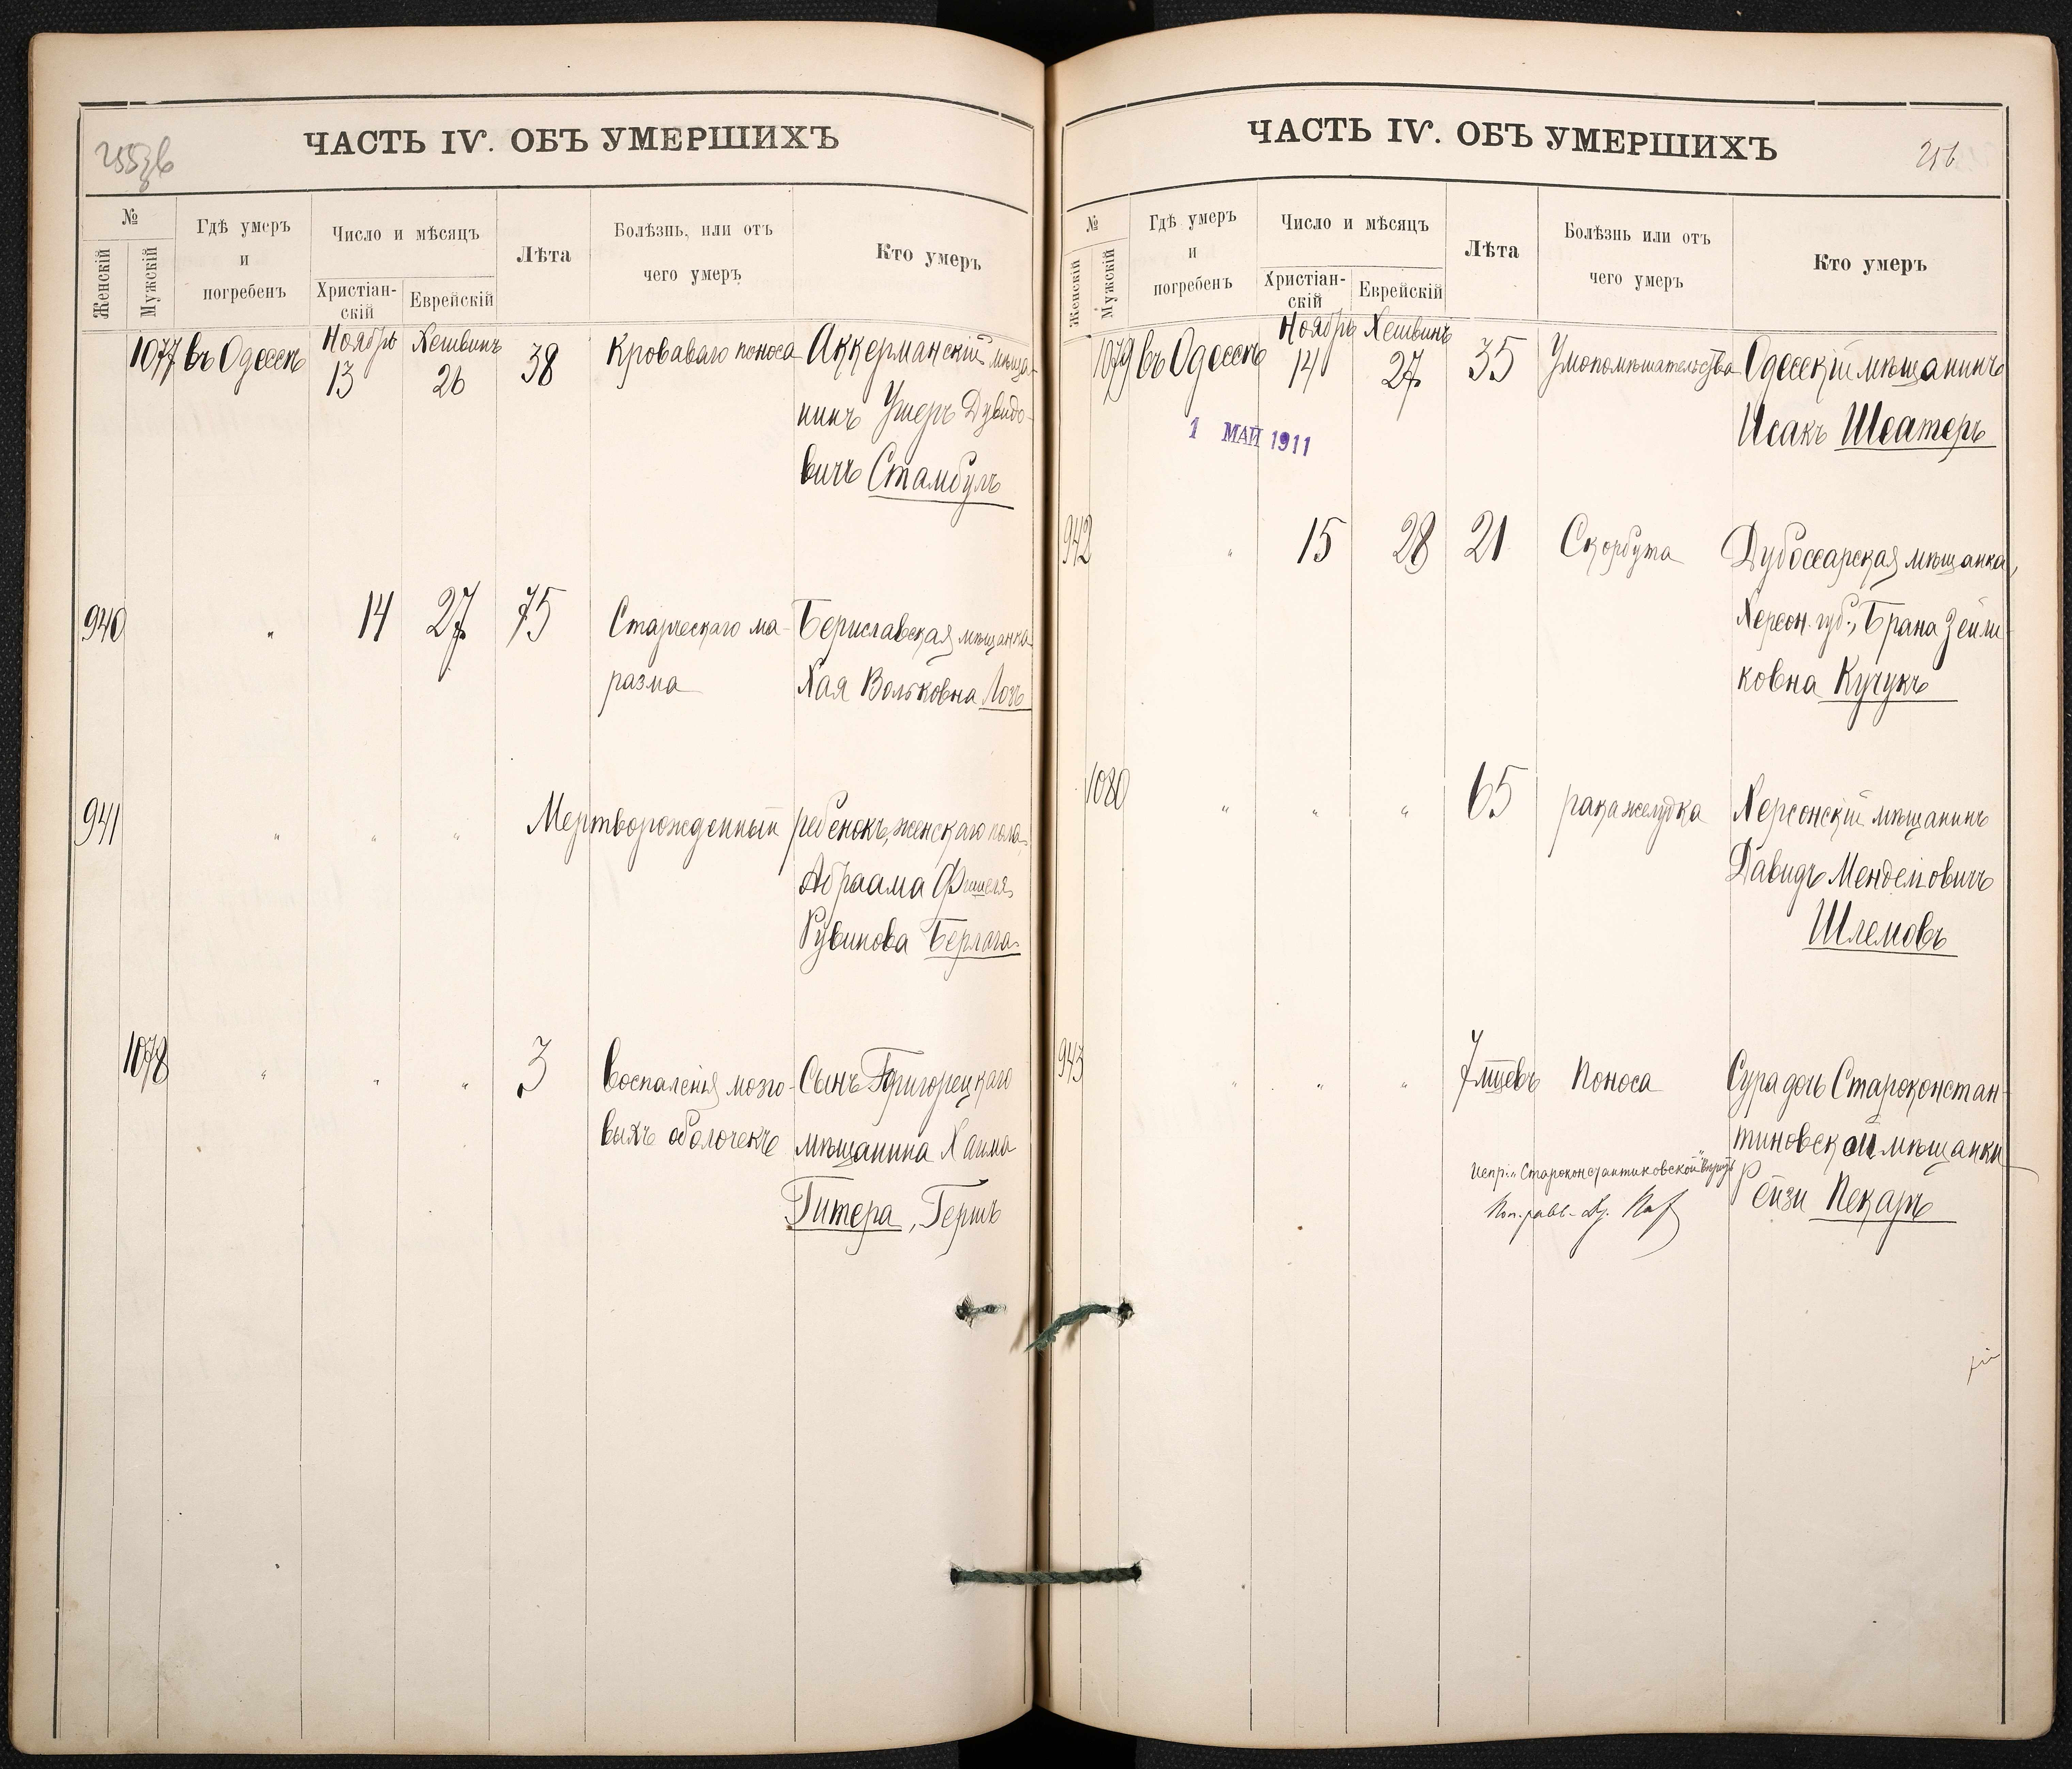 255об
ЧАСТЬ IV. ОБЪ УМЕРШИХЪ
№
Женскій
Мужскій
Гдѣ умеръ
и
погребенъ
Число и мѣсяцъ
Христіан-
скій
Еврейскій
Лѣта
Болѣзнь, или отъ
чего умеръ
Кто умеръ
Ноябрь Хешвинъ
1077 въ Одессѣ 13 26 38 Кроваваго поноса Аккерманскій мѣща-
нинъ Ушеръ Дувидо-
вичъ Стамбулъ
940 " 14 27 75 Старческаго ма- Бериславская мѣщанка
разма Хая Вольковна
941 " " " Мертворожденный ребенокъ, женскаго пола,
Абраама Фишеля
Рувинова Берлага
1078 " " " 3 Воспаленія мозго- Сынъ Григорецкаго
выхъ оболочекъ мѣщанина Хаима
Гитера, Гершъ
ЧАСТЬ IV. ОБЪ УМЕРШИХЪ
256
№
Женскій
Мужскій
Гдѣ умеръ
и
погребенъ
Число и мѣсяцъ
Христіан-
скій
Еврейскій
Лѣта
Болѣзнь или отъ
чего умеръ
Кто умеръ
Ноябрь Хешвинъ
1079 въ Одессѣ 14 27 35 Умопомѣшательства Одесскій мѣщанинъ
1 МАЙ 1911
Исакъ Шватеръ
942 " 15 28 21 Скорбута Дубоссарская мѣщанка,
Херсон. губ., Брана Зейли-
ковна Кучукъ
1080 " " " 65 рака желудка Херсонскій мѣщанинъ
Давидъ Менделовичъ
Шлемовъ
943 " " " 7 мцевъ Поноса Сура дочь Староконстан-
тиновской мѣщанки
Рейзи Пекаръ
Испр: "Староконстантиновской"